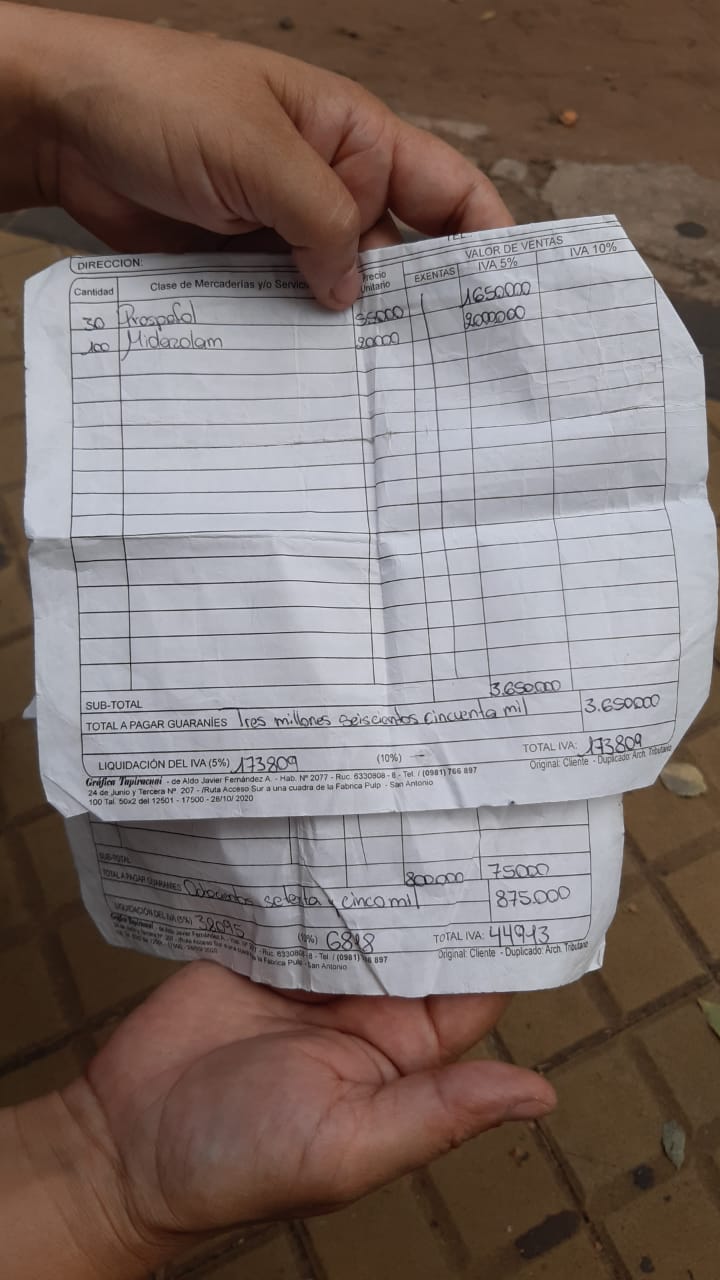 TEL.
DIRECCION:
VALOR DE VENTAS
Cantidad Clase de Mercaderías y/o Servicio Precio Unitario EXENTAS IVA 5% IVA 10%
30 Prospofol 55000 1650000
100 Midazolam 20000 2000000
SUB-TOTAL 3.650000
TOTAL A PAGAR GUARANÍES Tres millones seiscientos cincuenta mil 3.650000
LIQUIDACIÓN DEL IVA (5%) 173809 (10%) — TOTAL IVA: 173809
Gráfica Tapiracuai - de Aldo Javier Fernández A. - Hab. Nº 2077 - Ruc. 6330808 - 8 - Tel / (0981) 766 897 Original: Cliente - Duplicado: Arch. Tributario
24 de Junio y Tercera Nº 207 - /Ruta Acceso Sur a una cuadra de la Fabrica Pulp - San Antonio
100 Tal. 50x2 del 12501 - 17500 - 28/10/ 2020
SUB-TOTAL 800.000 75000
TOTAL A PAGAR GUARANIES Odocentos setenta y cinco mil 875.000
LIQUIDACIÓN DEL IVA (5%) 38095 (10%) 6818 TOTAL IVA: 44913
Original: Cliente - Duplicado: Arch. Tributario
Ruc. 6330808-8 - Tel / (0981) 766 897
la Fabrica Pulp - San Antonio